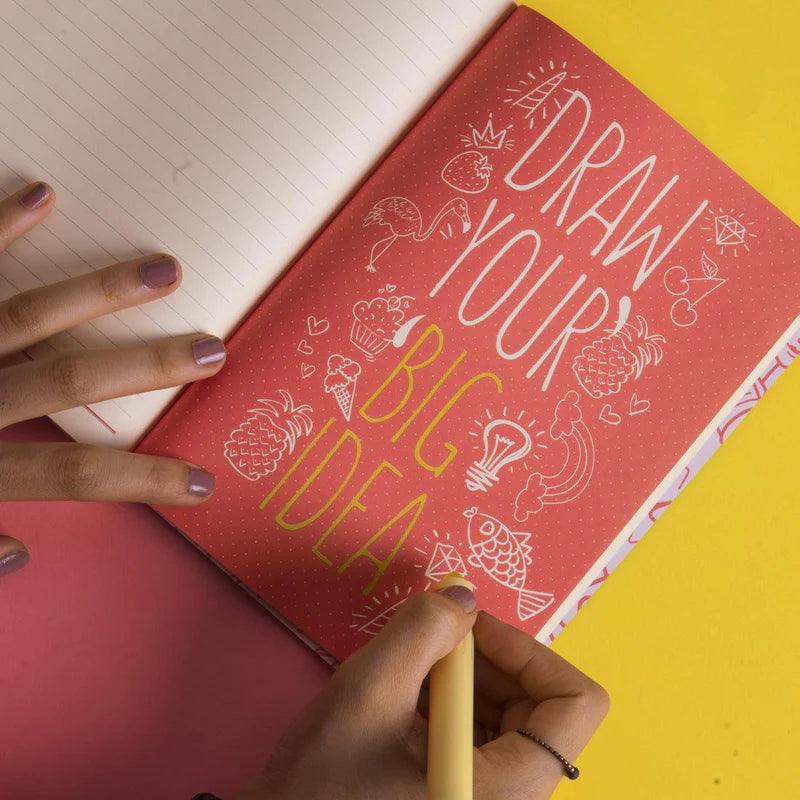 DRAW
YOUR’
‘BIG
IDEA